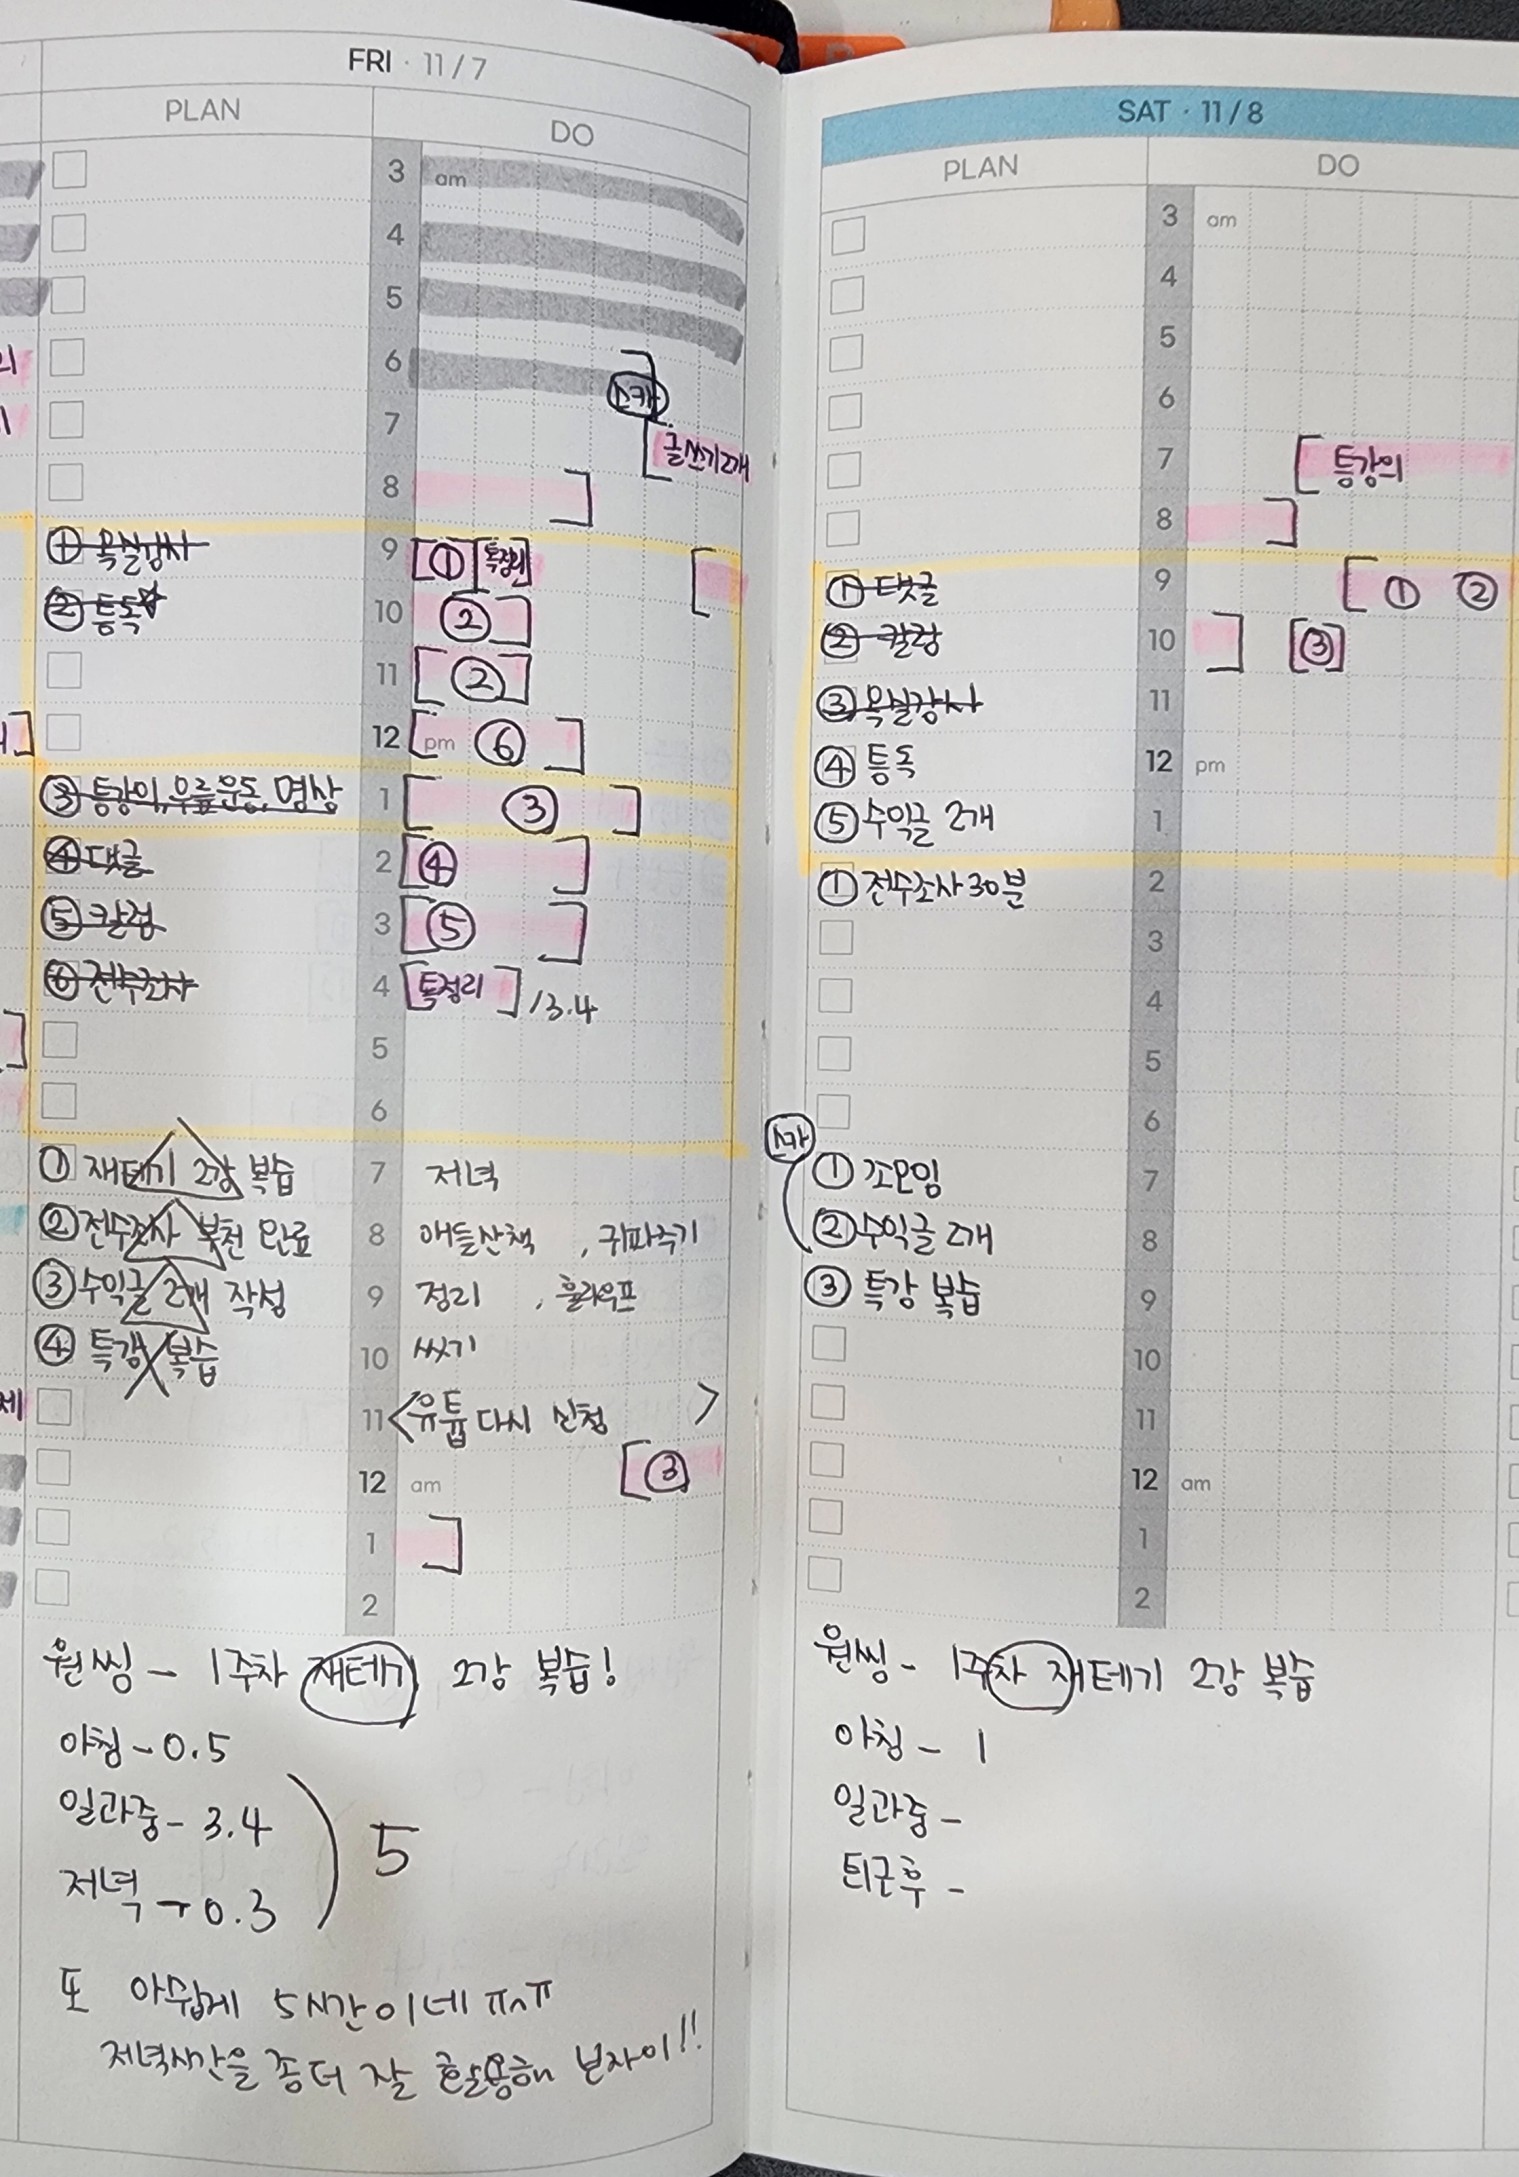 FRI · 11/7
PLAN
DO
3 am
4
5
6
스카
7
글쓰기2개
8
① 목실감사
9 ① 독정리
② 통독☆
10 ②
11 ②
12 pm ⑥
③ 통강의, 우릎운동, 명상
1 ③
④ 댓글
2 ④
⑤ 칼럼
3 ⑤
⑥ 전수조사
4 독정리 /3.4
5
6
① 재테기 2강 복습
7 저녁
② 전수조사 부천 완료
8 애들산책
③ 수익글 2개 작성
9 정리 , 훌라우프
④ 특강 복습
10 씻기
11 <유튭 다시 신청 >
12 am ③
1
2
원씽 - 1주차 재테기 2강 복습!
아침 - 0.5
일과중 - 3.4
저녁 - 0.3
5
또 아쉽게 5시간이네 ㅠㅅㅠ
저녁시간을 좀더 잘 활용해 보자이!!
SAT · 11/8
PLAN
DO
3 am
4
5
6
7 통강의
8
① 댓글
9 ① ②
② 칼럼
10 ③
③ 목실감사
11
④ 통독
12 pm
⑤ 수익글 2개
1
① 전수조사 30분
2
3
4
5
6
스카
① 조모임
7
② 수익글 2개
8
③ 특강 복습
9
10
11
12 am
1
2
원씽 - 1주차 재테기 2강 복습
아침 - 1
일과중 -
퇴근후 -